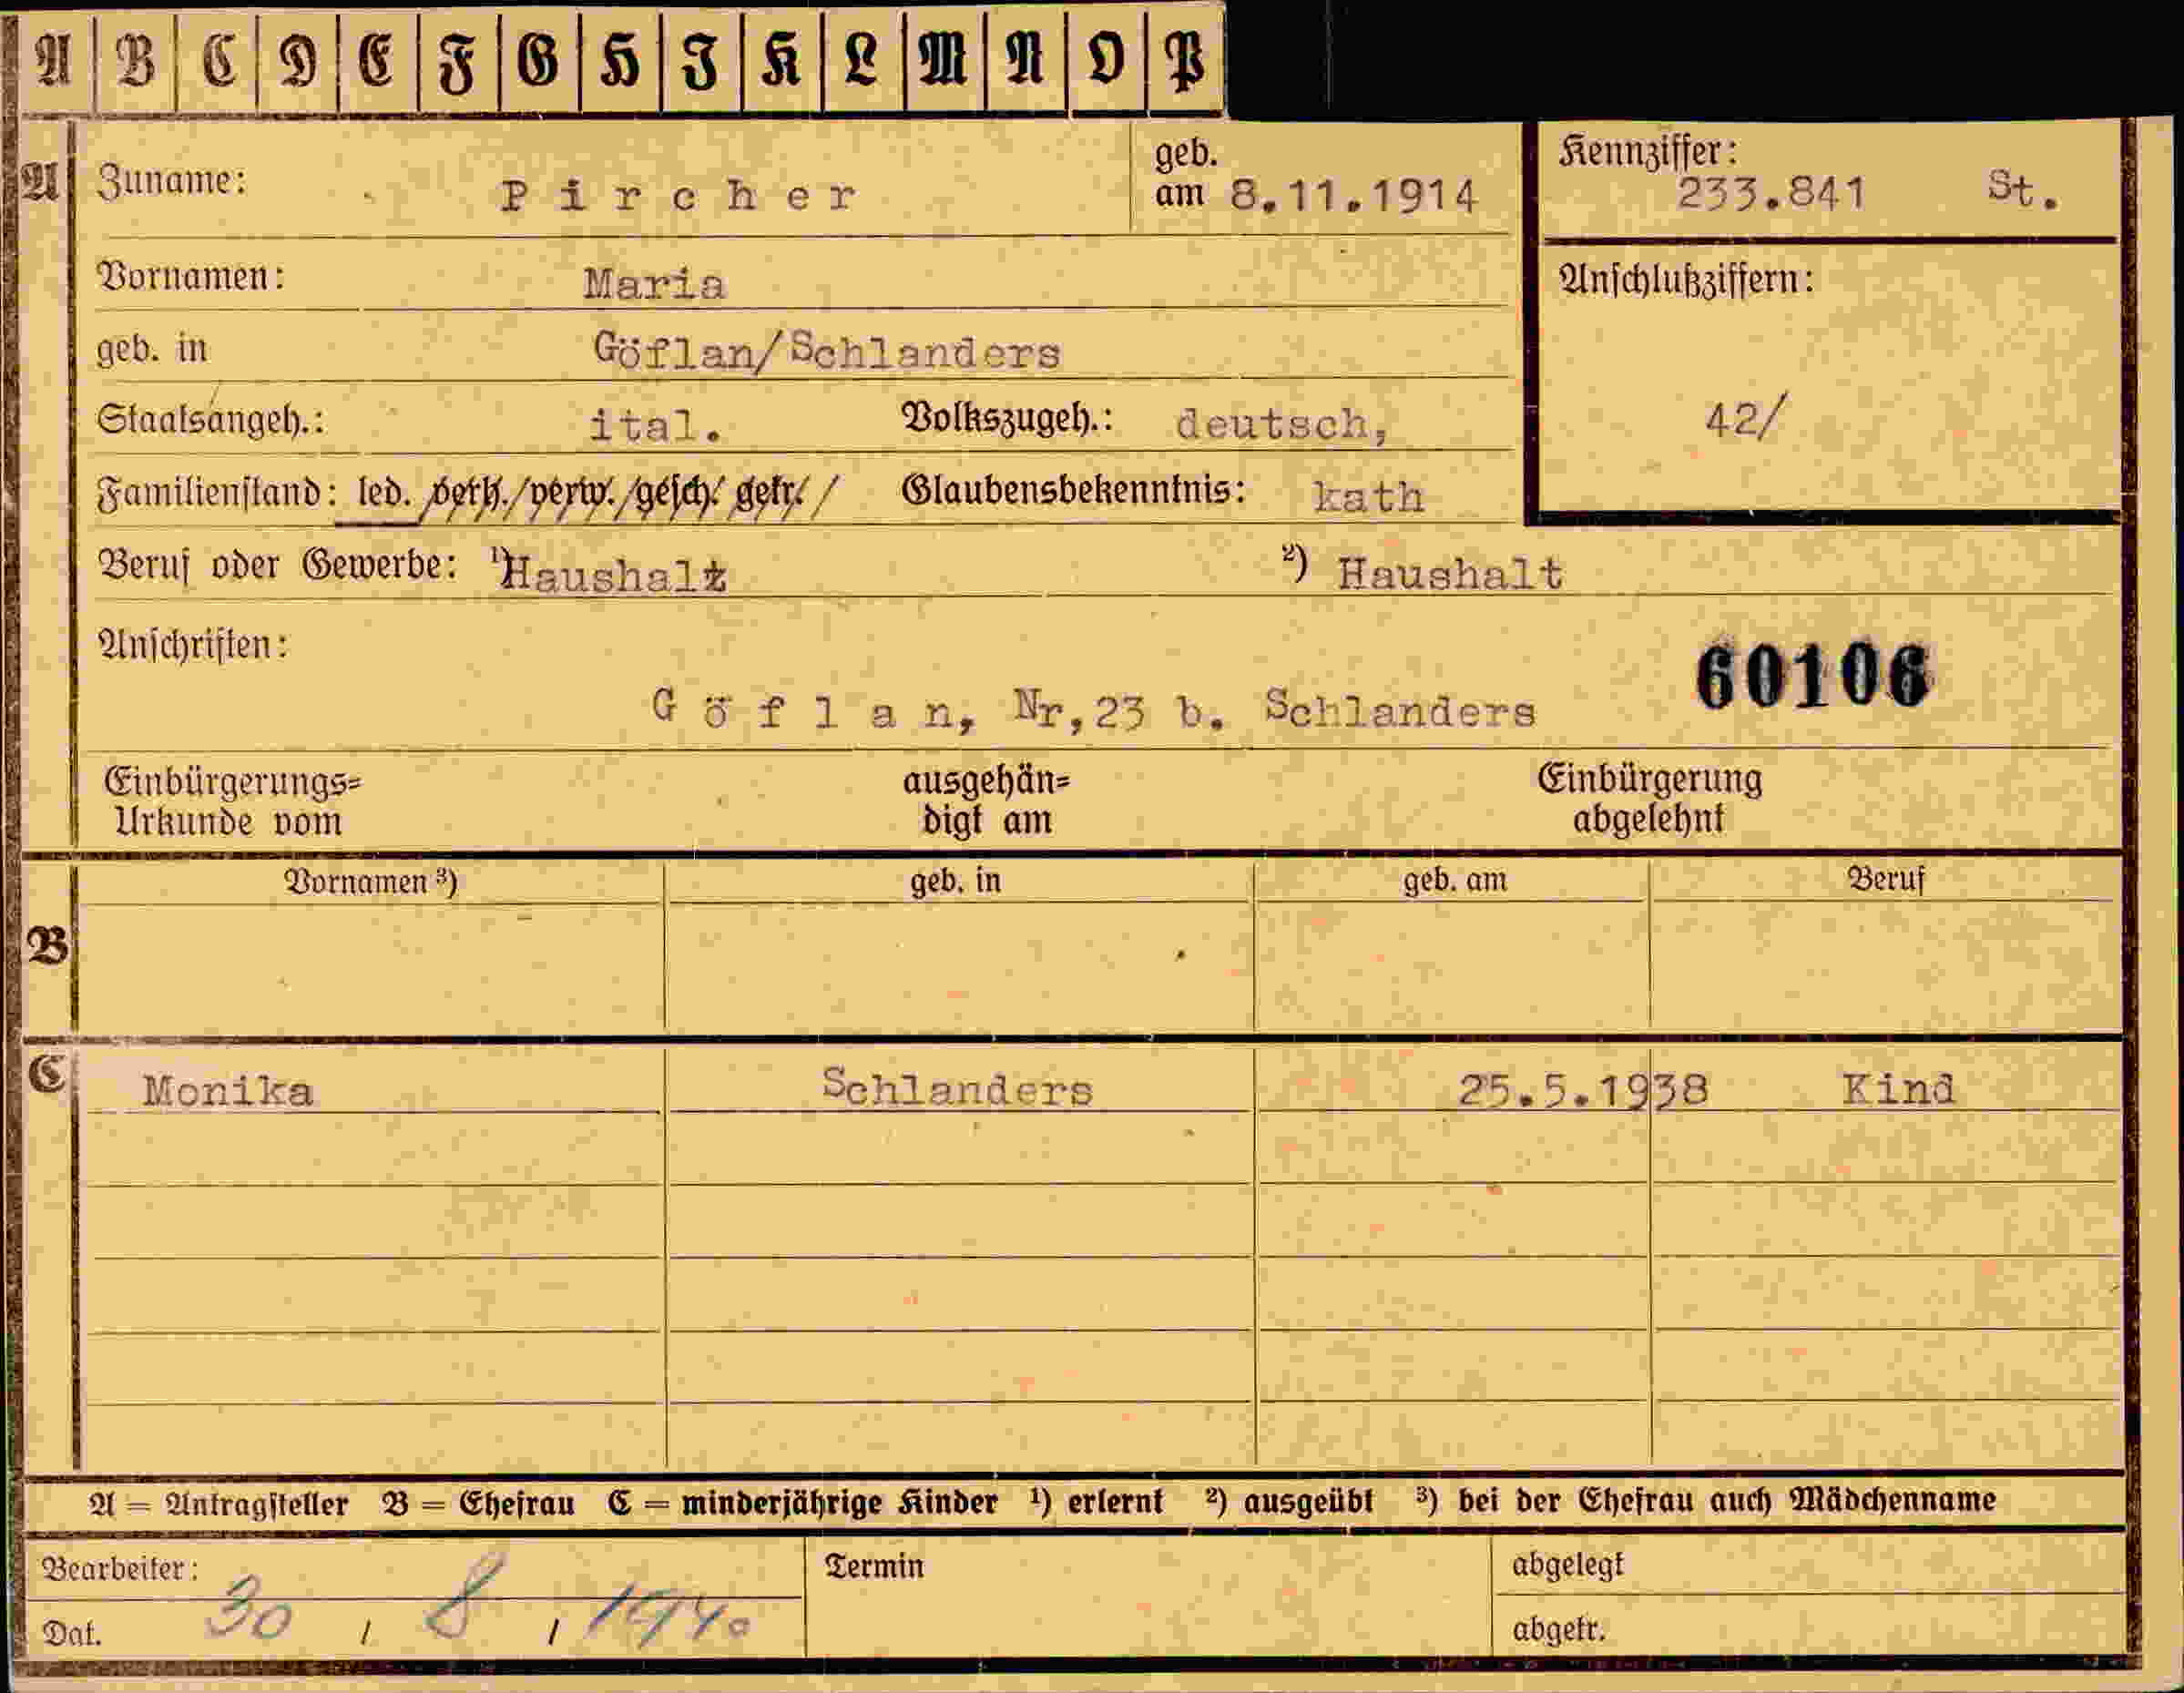 A B C D E F G H I K L M N O P
A Zuname: Pircher geb. am 8.11.1914 Kennziffer: 233.841 St.
Vornamen: Maria Anschlußziffern:
geb. in Göflan/Schlanders
Staatsangeh.: ital. Volkszugeh.: deutsch, 42/
Familienstand: led. verh./verw./gesch./getr./ Glaubensbekenntnis: kath
Beruf oder Gewerbe: ¹) Haushalt ²) Haushalt
Anschriften: 60106
Göflan, Nr,23 b. Schlanders
Einbürgerungs= ausgehän= Einbürgerung
Urkunde vom digt am abgelehnt
Vornamen ³) geb. in geb. am Beruf
B
C Monika Schlanders 25.5.1938 Kind
A = Antragsteller B = Ehefrau C = minderjährige Kinder ¹) erlernt ²) ausgeübt ³) bei der Ehefrau auch Mädchenname
Bearbeiter: Termin abgelegt
Dat. 30 / 8 / 1940 abgetr.